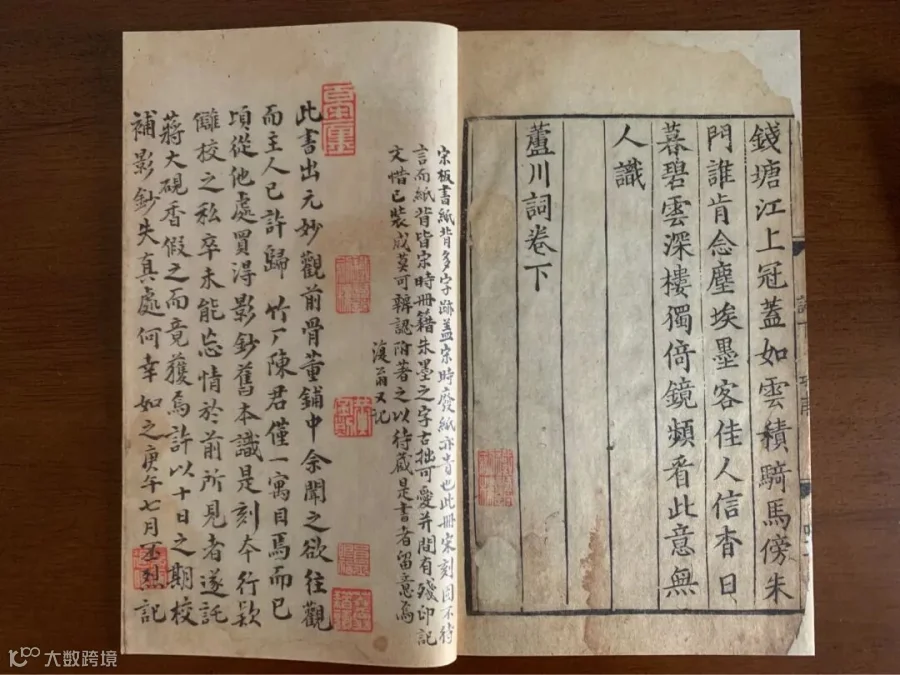 錢塘江上冠蓋如雲積騎馬傍朱
門誰肯念塵埃墨客佳人信杳日
暮碧雲深樓獨倚鏡頻看此意無
人識
蘆川詞卷下
宋板書紙背多字跡蓋宋時廢紙亦貴也此冊宋刻固不待
言而紙背皆宋時冊籍朱墨之字古拙可愛并間有殘印記
文惜已裝成莫可辨認附著之以待藏是書者留意焉
復翁又記
此書出元妙觀前骨董鋪中余聞之欲往觀
而主人已許歸竹厂陳君僅一寓目焉而已
頃從他處買得影鈔舊本識是刻本行款
讎校之私卒未能忘情於前所見者遂託
蔣大硯香假之而竟獲焉許以十日之期校
補影鈔失真處何幸如之庚午七月丕烈記
大数跨境